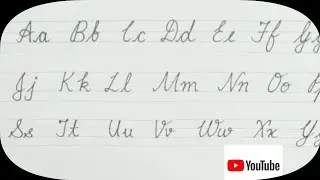 Aa Bb Cc Dd Ee Ff Gg
Jj Kk Ll Mm Nn Oo
Ss Tt Uu Vv Ww Xx Yy
YouTube